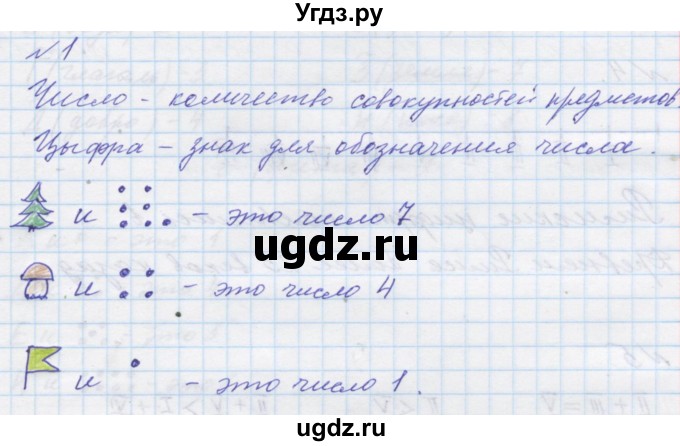 Угдз.ру
№1
Число - количество совокупностей предметов.
Цыфра - знак для обозначения числа.
и - это число 7
ugdz.ru
и - это число 4
и - это число 1.
ugdz.ru
ugdz.ru